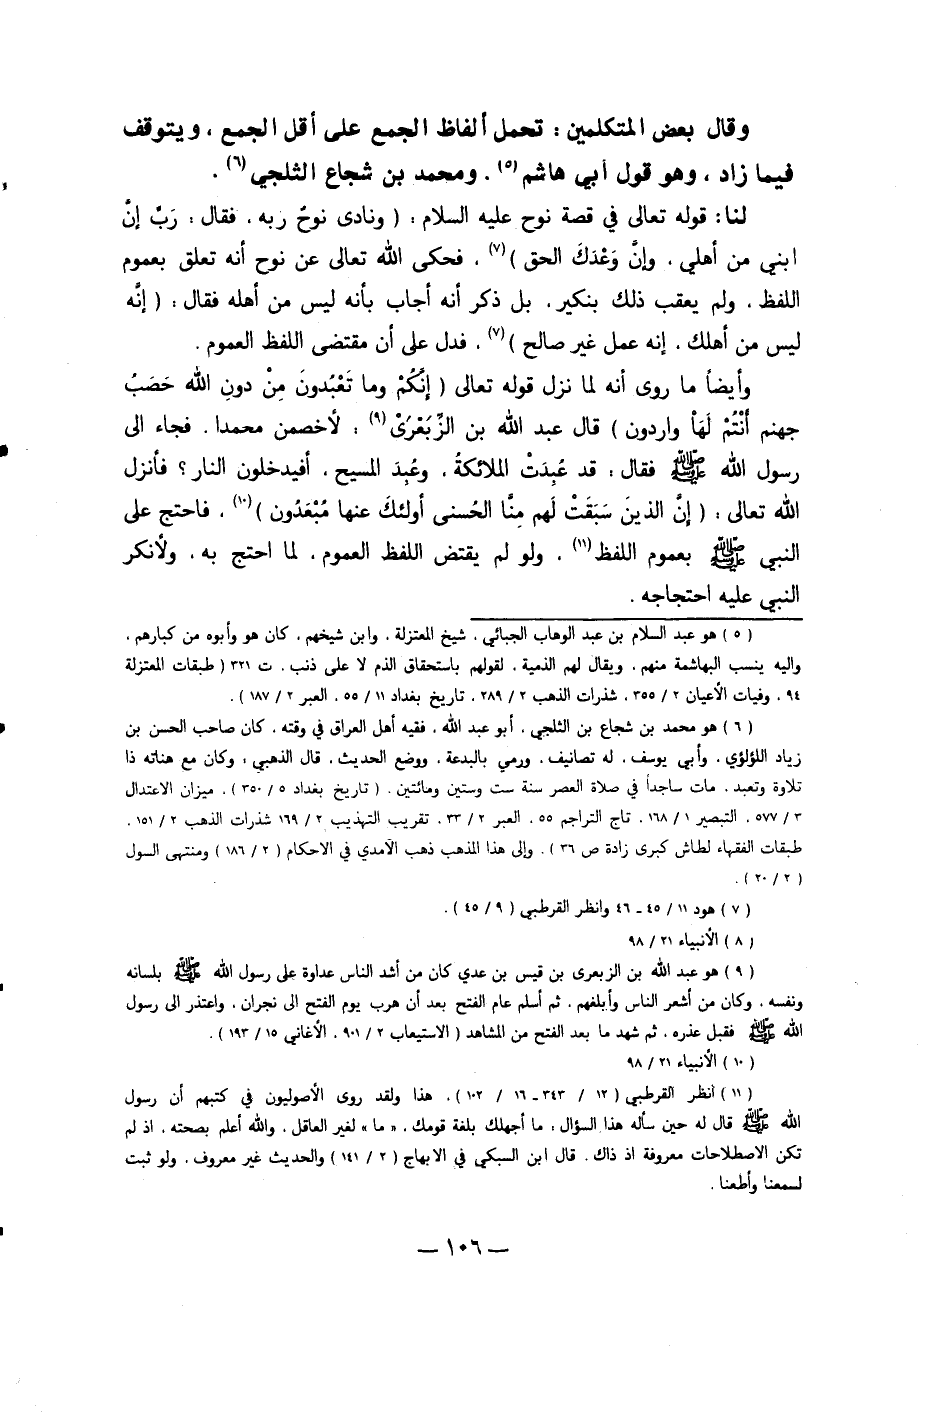 وقال بعض المتكلمين : تحمل ألفاظ الجمع على أقل الجمع ، ويتوقف
فيما زاد ، وهو قول أبي هاشم (٥) . ومحمد بن شجاع الثلجي (٦) .
لنا : قوله تعالى في قصة نوح عليه السلام : ( ونادى نوحٌ ربه ، فقال : رَبِّ إنَّ
ابني من أهلي ، وإنَّ وَعْدَكَ الحق ) (٧) ، فحكى الله تعالى عن نوح أنه تعلق بعموم
اللفظ ، ولم يعقب ذلك بنكير ، بل ذكر أنه أجاب بأنه ليس من أهله فقال : ( إنَّه
ليس من أهلك ، إنه عمل غير صالح ) (٧) ، فدل على أن مقتضى اللفظ العموم .
وأيضاً ما روى أنه لما نزل قوله تعالى ( إنَّكُمْ وما تَعْبُدونَ مِنْ دونِ الله حَصَبُ
جهنم أَنْتُمْ لَهَاْ واردون ) قال عبد الله بن الزِّبَعْرَىْ (٩) : لأخصمن محمدا . فجاء الى
رسول الله ﷺ فقال : قد عُبِدَتْ الملائكةُ ، وعُبِدَ المسيح ، أفيدخلون النار ؟ فأنزل
الله تعالى : ( إنَّ الذينَ سَبَقَتْ لَهم مِنَّا الحُسنى أولئكَ عنها مُبْعَدُون ) (١٠) ، فاحتج على
النبي ﷺ بعموم اللفظ (١١) ، ولو لم يقتض اللفظ العموم ، لما احتج به ، ولأنكر
النبي عليه احتجاجه .
( ٥ ) هو عبد السلام بن عبد الوهاب الجبائي ، شيخ المعتزلة ، وابن شيخهم ، كان هو وأبوه من كبارهم ،
واليه ينسب البهاشمة منهم ، ويقال لهم الذمية ، لقولهم باستحقاق الذم لا على ذنب ، ت ٣٢١ ( طبقات المعتزلة
٩٤ ، وفيات الأعيان ٢ / ٣٥٥ ، شذرات الذهب ٢ / ٢٨٩ ، تاريخ بغداد ١١ / ٥٥ ، العبر ٢ / ١٨٧ ) .
( ٦ ) هو محمد بن شجاع بن الثلجي ، أبو عبد الله ، فقيه أهل العراق في وقته ، كان صاحب الحسن بن
زياد اللؤلؤي ، وأبي يوسف ، له تصانيف ، ورمي بالبدعة ، ووضع الحديث ، قال الذهبي : وكان مع هناته ذا
تلاوة وتعبد ، مات ساجداً في صلاة العصر سنة ست وستين ومائتين . ( تاريخ بغداد ٥ / ٣٥٠ ) ، ميزان الاعتدال
٣ / ٥٧٧ ، التبصير ١ / ١٦٨ ، تاج التراجم ٥٥ ، العبر ٢ / ٣٣ ، تقريب التهذيب ٢ / ١٦٩ شذرات الذهب ٢ / ١٥١ ،
طبقات الفقهاء لطاش كبرى زادة ص ٣٦ ) . وإلى هذا المذهب ذهب الآمدي في الاحكام ( ٢ / ١٨٦ ) ومنتهى السول
( ٢ / ٢٠ ) .
( ٧ ) هود ١١ / ٤٥ ـ ٤٦ وانظر القرطبي ( ٩ / ٤٥ ) .
( ٨ ) الأنبياء ٢١ / ٩٨
( ٩ ) هو عبد الله بن الزبعرى بن قيس بن عدي كان من أشد الناس عداوة على رسول الله ﷺ بلسانه
ونفسه ، وكان من أشعر الناس وأبلغهم ، ثم أسلم عام الفتح بعد أن هرب يوم الفتح الى نجران ، واعتذر الى رسول
الله ﷺ فقبل عذره ، ثم شهد ما بعد الفتح من المشاهد ( الاستيعاب ٢ / ٩٠١ ، الأغاني ١٥ / ١٩٣ ) .
( ١٠ ) الأنبياء ٢١ / ٩٨
( ١١ ) أنظر القرطبي ( ١٢ / ٣٤٣ ـ ١٦ / ١٠٢ ) ، هذا ولقد روى الأصوليون في كتبهم أن رسول
الله ﷺ قال له حين سأله هذا السؤال : ما أجهلك بلغة قومك ، « ما » لغير العاقل ، والله أعلم بصحته ، اذ لم
تكن الاصطلاحات معروفة اذ ذاك . قال ابن السبكي في الابهاج ( ٢ / ١٤١ ) والحديث غير معروف ، ولو ثبت
لسمعنا وأطعنا .
— ١٠٦ —